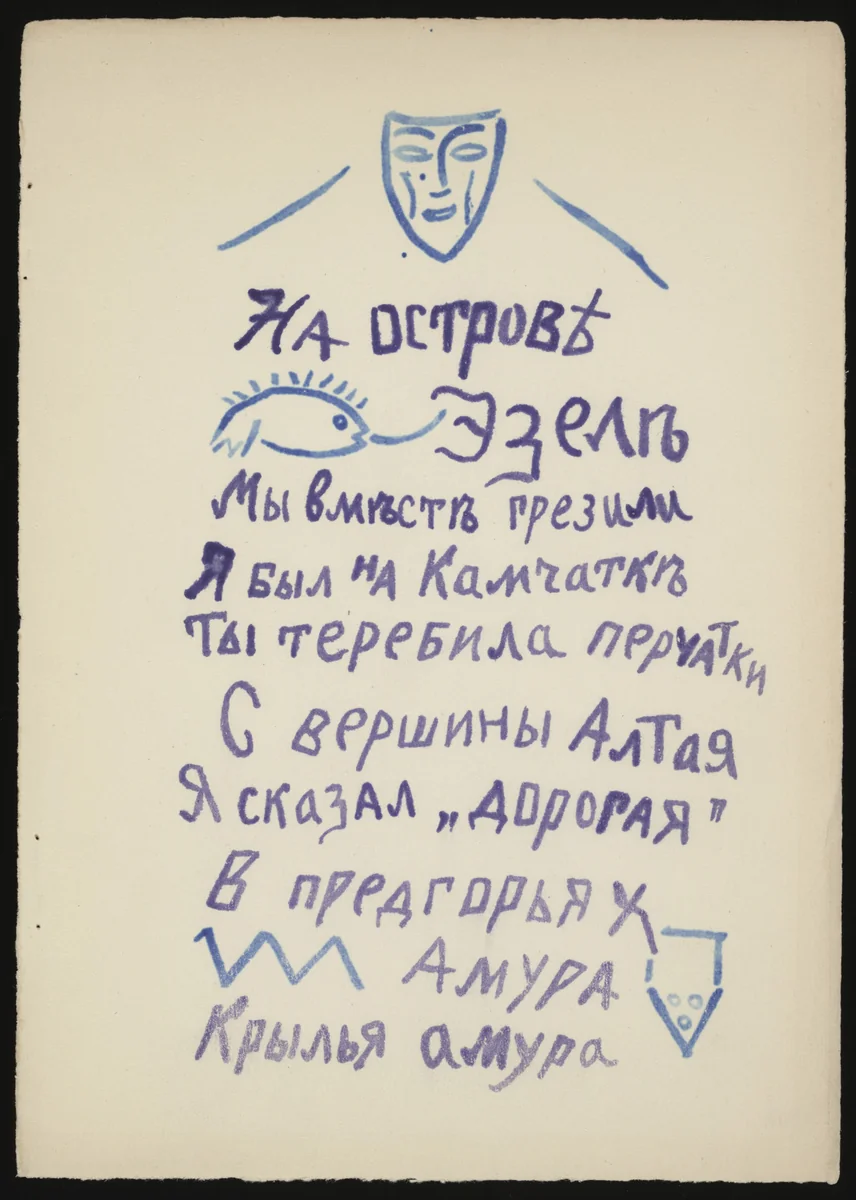 На островѣ
Эзелѣ
Мы вмѣстѣ грезили
Я был на Камчаткѣ
Ты теребила перчатки
С вершины Алтая
Я сказал „дорогая”
В предгорьях
Амура
Крылья амура